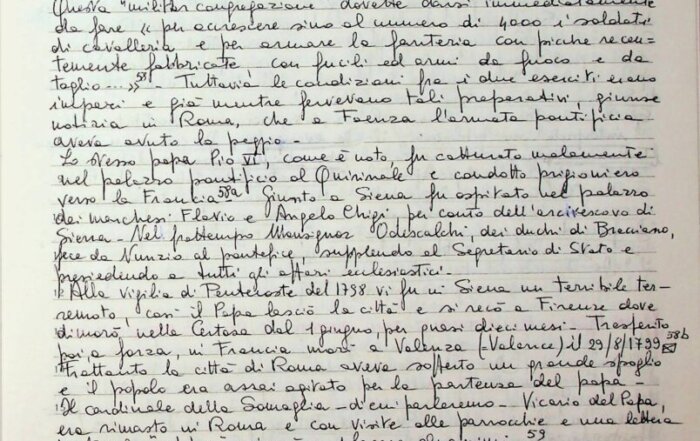 Questa "militar congregazione" dovette darsi immediatamente
da fare « per accrescere sino al numero di 4000 i soldati
di cavalleria e per armare la fanteria con picche recen-
temente fabbricate, con fucili ed armi da fuoco e da
taglio...» 58 - Tuttavia le condizioni fra i due eserciti erano
impari e già mentre fervevano tali preparativi, giunse
notizia in Roma, che a Faenza l'armata pontificia
aveva avuto la peggio -
Lo stesso papa Pio VI, come è noto, fu catturato malamente
nel palazzo pontificio al Quirinale e condotto prigioniero
verso la Francia 58a - Giunto a Siena fu ospitato nel palazzo
dei marchesi Flavio e Angelo Chigi, per conto dell'arcivescovo di
Siena - Nel frattempo Monsignor Odescalchi, dei duchi di Bracciano,
fece da Nunzio al pontefice, supplendo al Segretario di Stato e
presiedendo a tutti gli affari ecclesiastici -
Alla vigilia di Pentecoste del 1798 vi fu in Siena un terribile ter-
remoto, così il Papa lasciò la città e si recò a Firenze dove
dimorò nella Certosa dal 1 giugno, per quasi dieci mesi - Trasferito
poi a forza, in Francia morì a Valenza (Valence) il 29/8/1799 58b
Frattanto la città di Roma aveva sofferto un grande spoglio
e il popolo era assai agitato per la partenza del papa -
Il cardinale della Somaglia - di cui parleremo - Vicario del Papa,
era rimasto in Roma e con visite alle parrocchie e una lettera
59